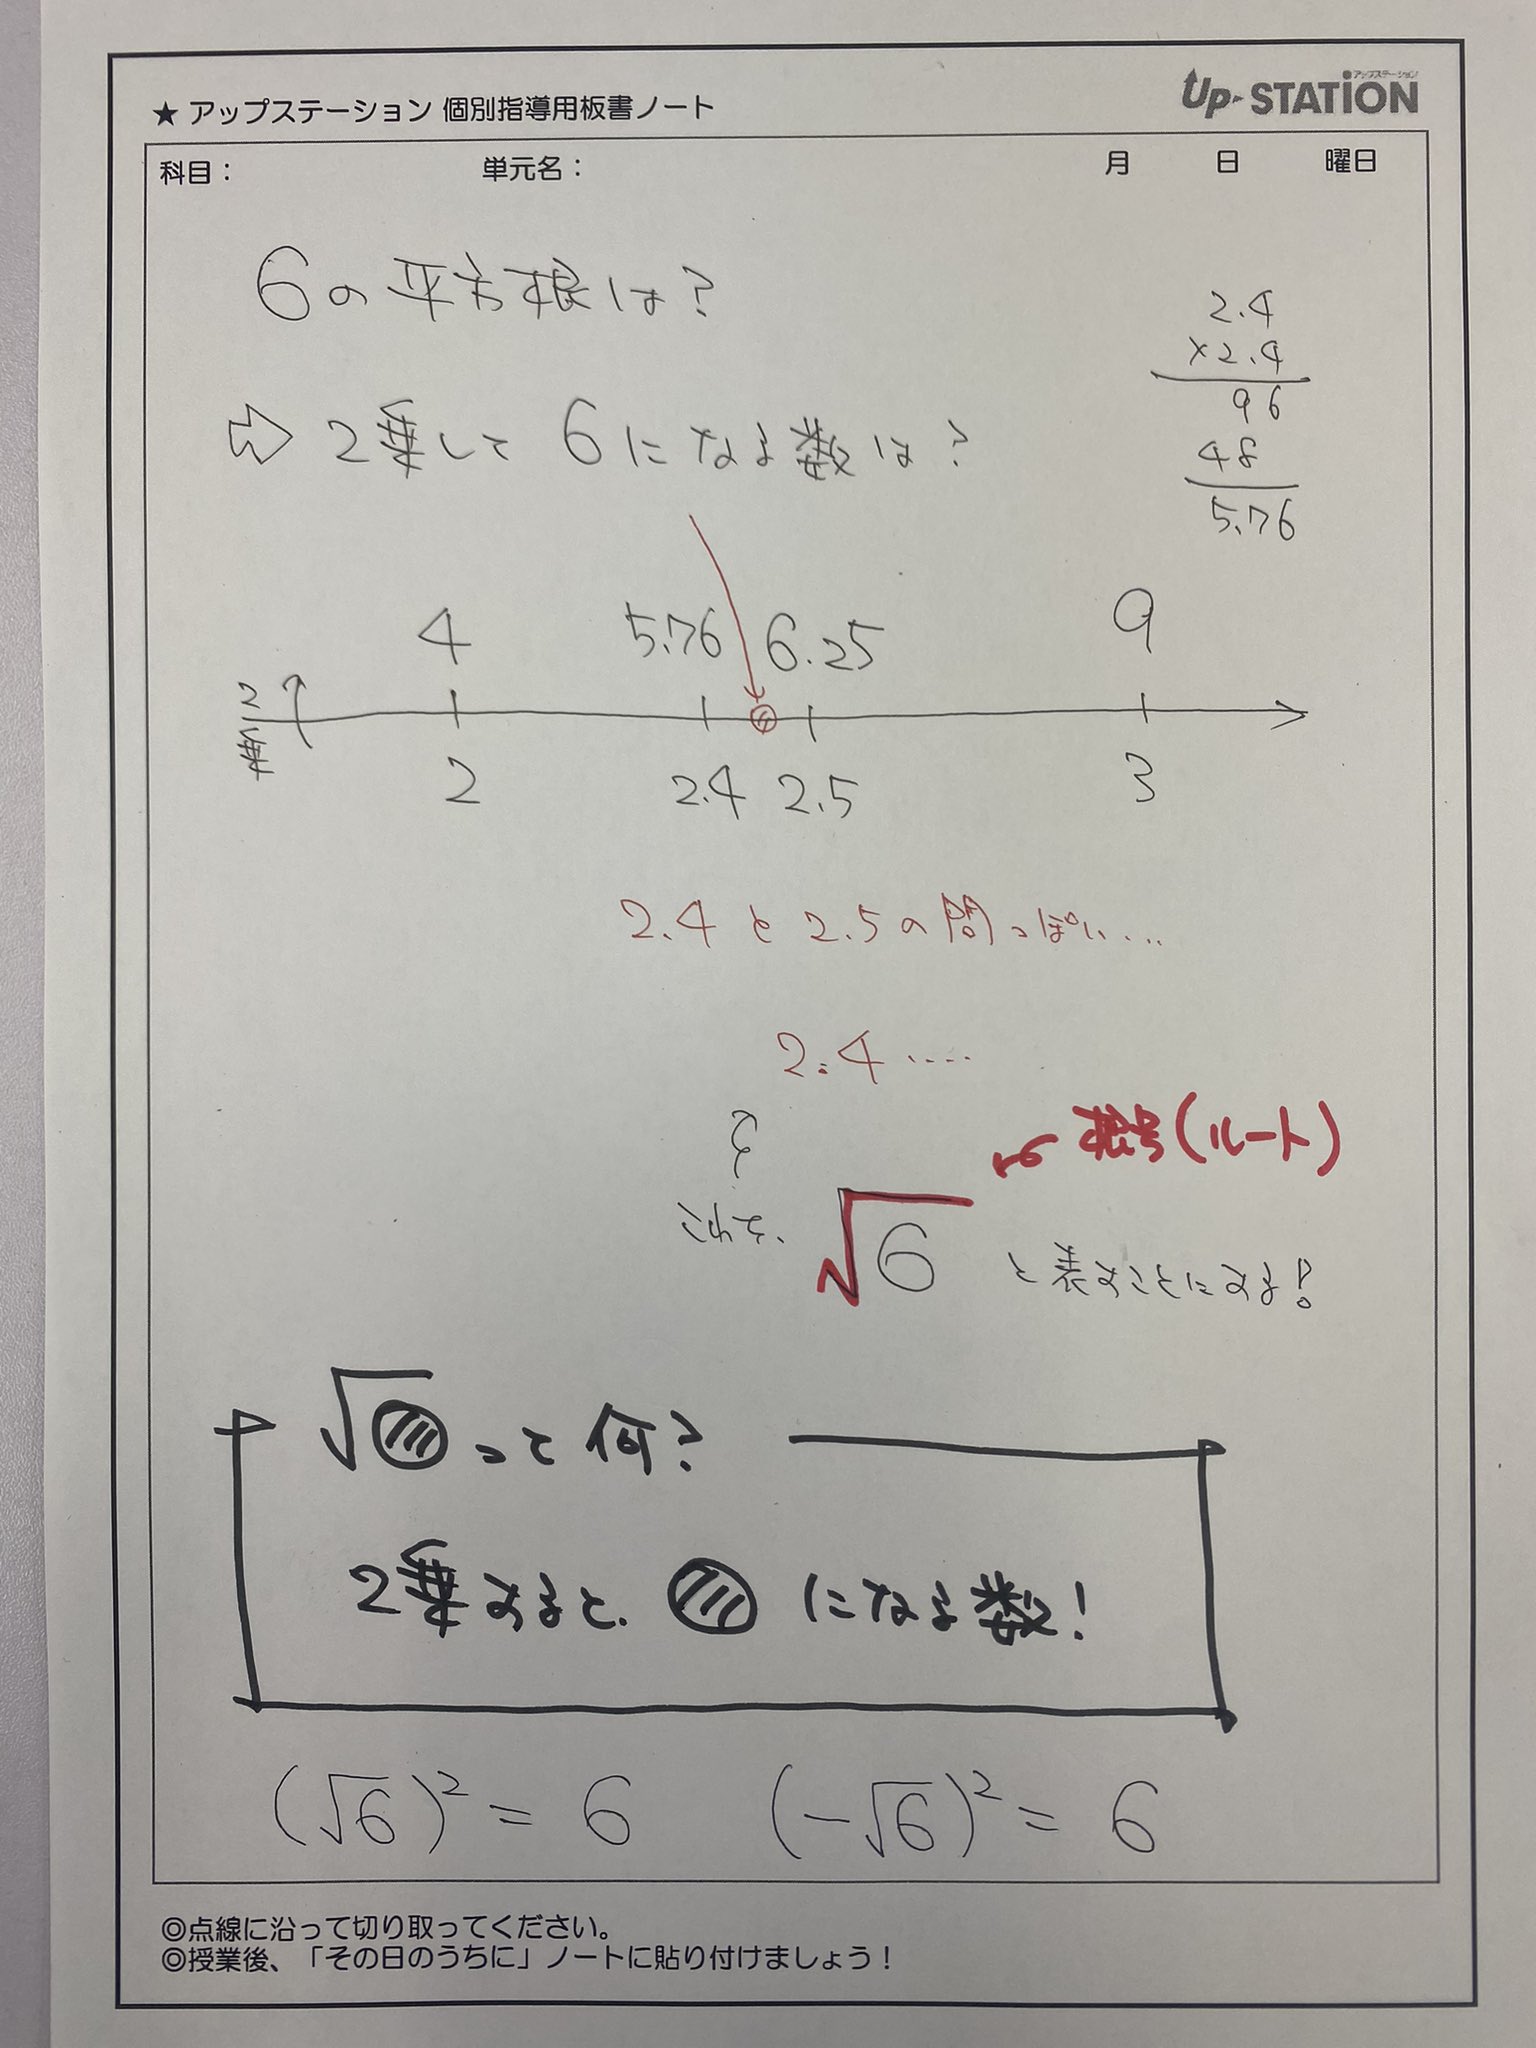 ★ アップステーション 個別指導用板書ノート
アップステーション
Up-STATION
科目：　単元名：　月　日　曜日
6の平方根は？
⇨ 2乗して6になる数は？
2.4
×2.4
96
48
5.76
4　5.76　6.25　9
2乗
2　2.4　2.5　3
2.4と2.5の間っぽい…
2.4‥‥
根号(ルート)
これを、√6 と表すことにする！
√◯って何？
2乗すると、◯になる数！
(√6)² = 6　(-√6)² = 6
◎点線に沿って切り取ってください。
◎授業後、「その日のうちに」ノートに貼り付けましょう！